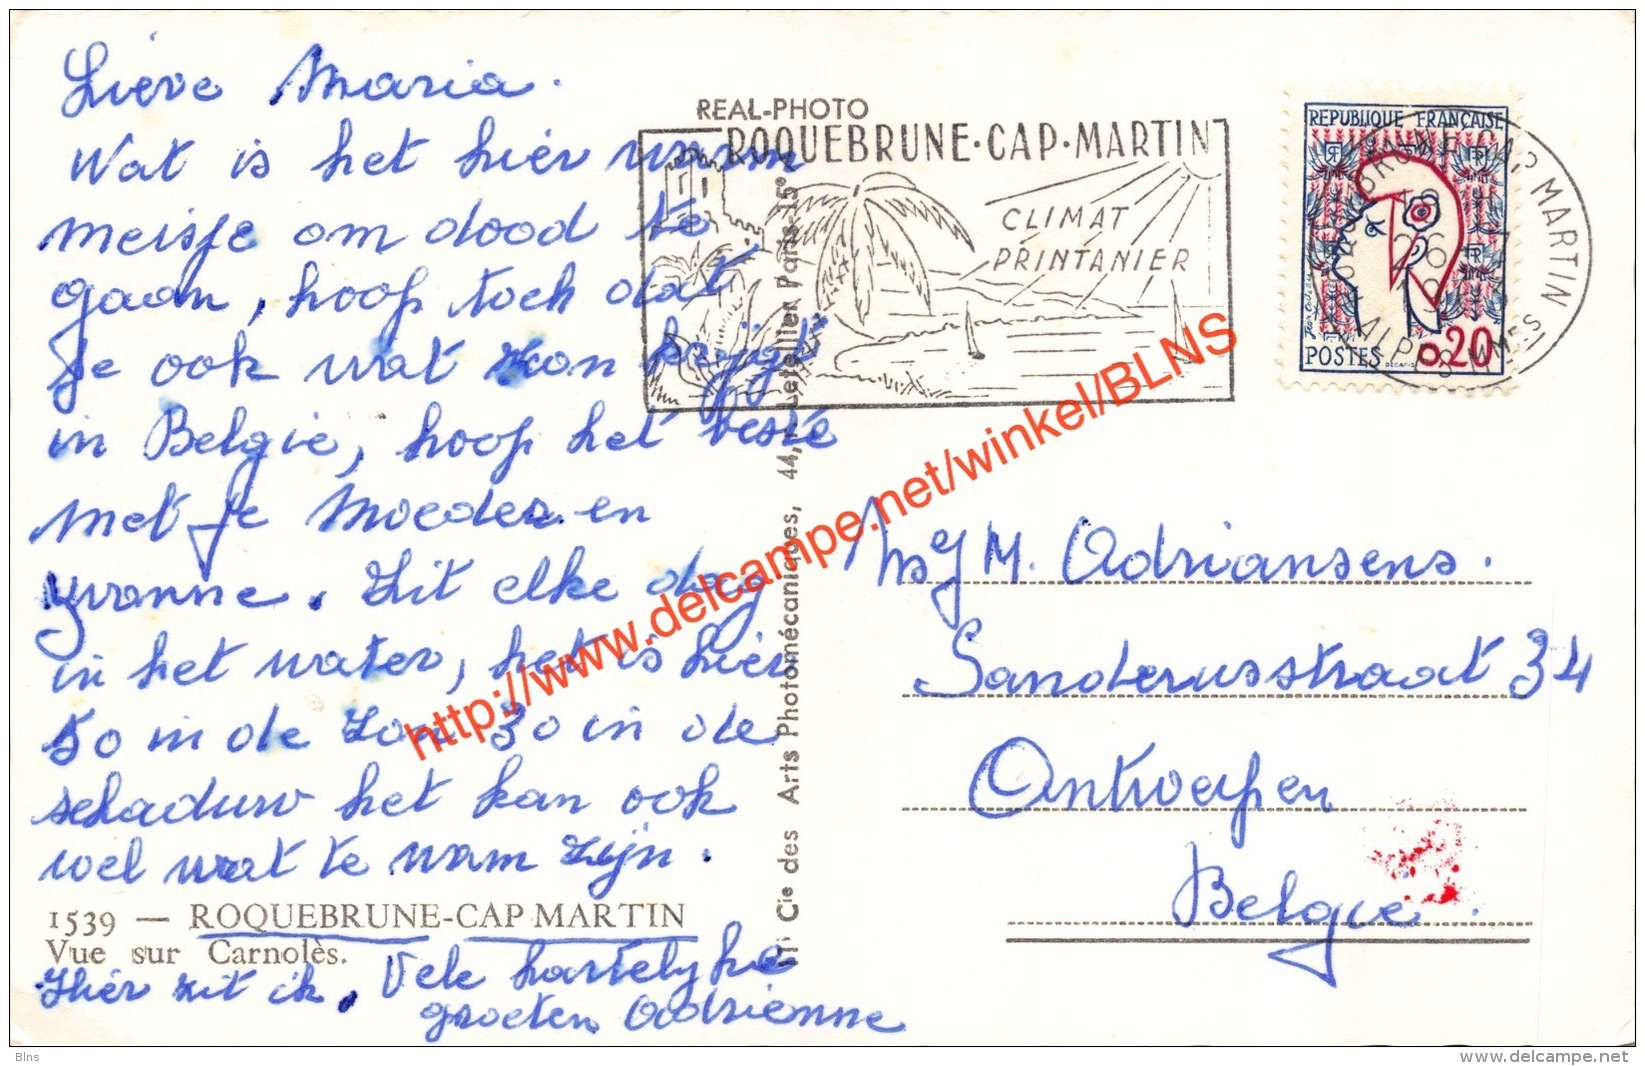 Lieve Maria.
Wat is het hier warm
meisje om dood te
gaan, hoop toch dat
je ook wat zon krijgt
in Belgie, hoop het beste
met je Moeder en
Yvonne. Zit elke dag
in het water, het is hier
50 in de zon 30 in de
schaduw het kan ook
wel wat te warm zijn.
1539 — ROQUEBRUNE-CAP MARTIN
Vue sur Carnolès.
Hier zit ik. Vele hartelyke
groeten Adrienne
REAL-PHOTO
ROQUEBRUNE·CAP·MARTIN
CLIMAT
PRINTANIER
Cie des Arts Photomécaniques, 44, r. Letellier Paris-15e
REPUBLIQUE FRANÇAISE
POSTES 0,20
ROQUEBRUNE CAP MARTIN
ALPES MMES
M. Adriansens.
Sanderusstraat 34
Antwerpen
Belgie.
http://www.delcampe.net/winkel/BLNS
Blns
http://www.delcampe.net